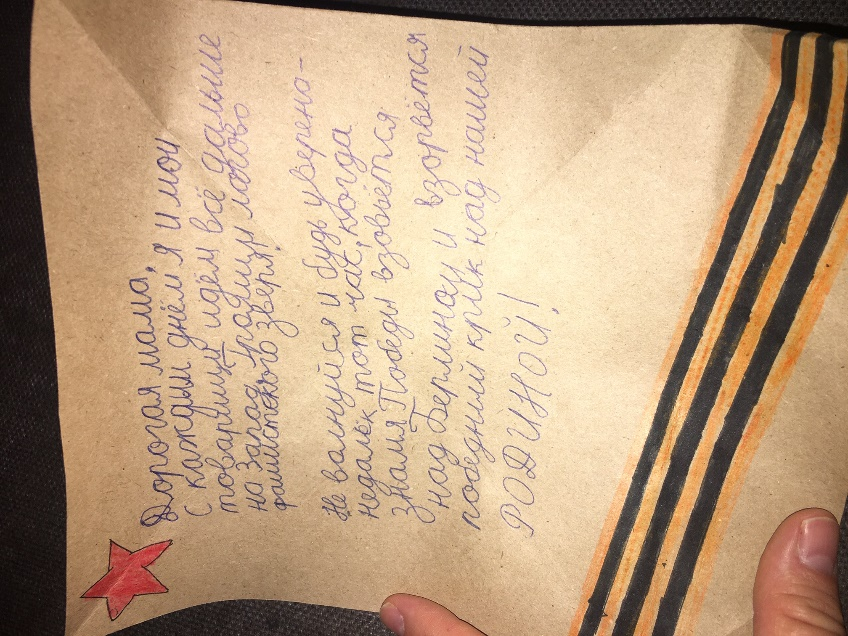 Дорогая мама,
С каждым днём я и мои
товарищи идём всё дальше
на Запад, логово
фашистского зверя.
Не валнуйся и будь уверена-
недалёк тот час, когда
знамя Победы взовьётся
над Берлиноу и взорвётся
победний крик над нашей
РОДИНОЙ!